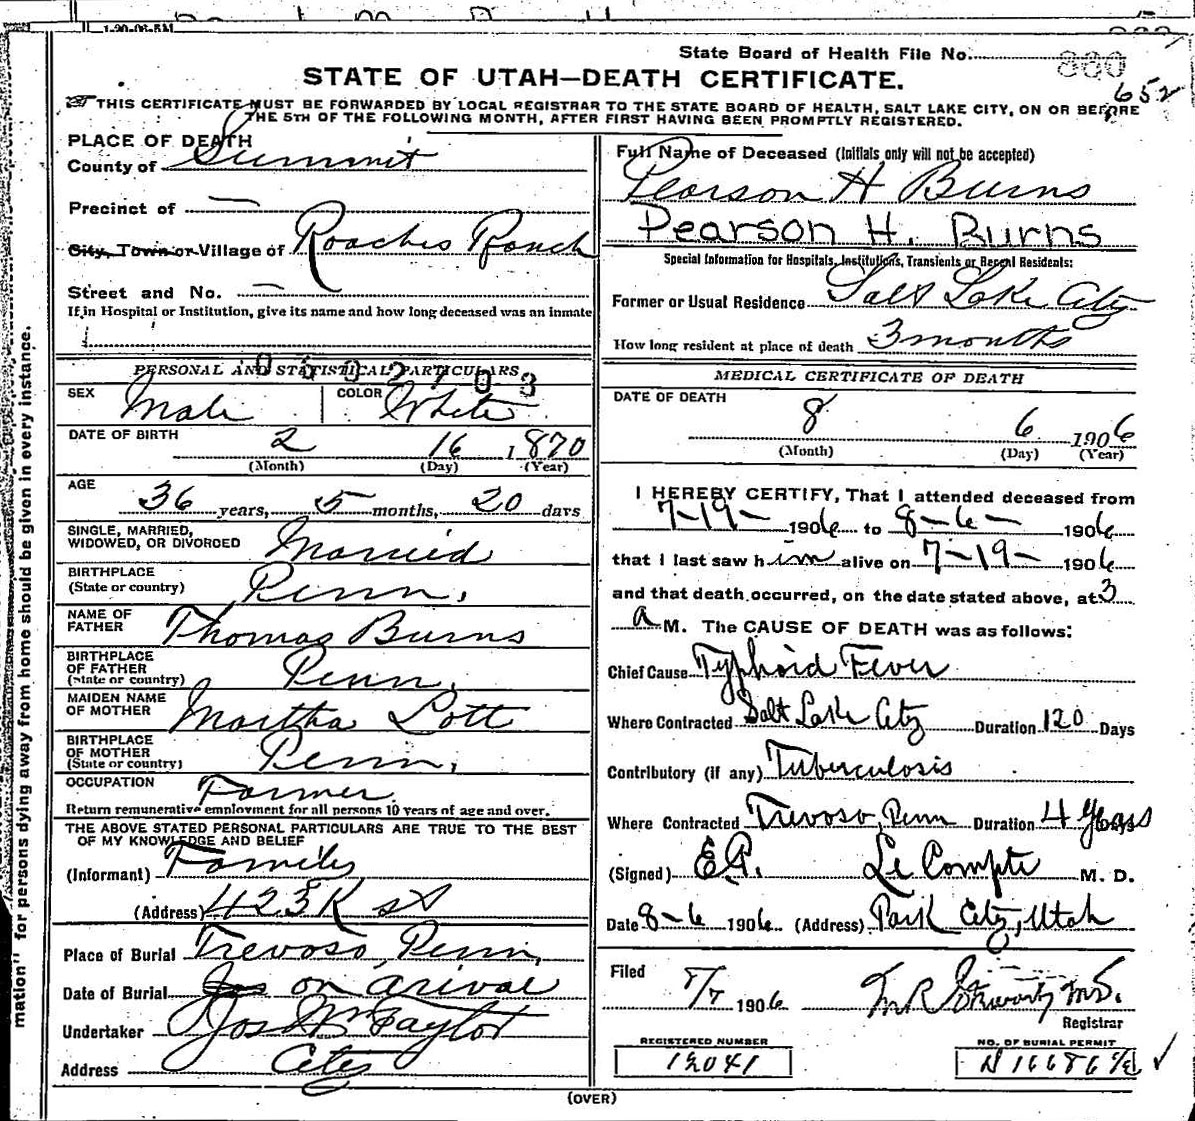 1-20-06-5M
State Board of Health File No. 880
652
STATE OF UTAH—DEATH CERTIFICATE.
THIS CERTIFICATE MUST BE FORWARDED BY LOCAL REGISTRAR TO THE STATE BOARD OF HEALTH, SALT LAKE CITY, ON OR BEFORE
THE 5TH OF THE FOLLOWING MONTH, AFTER FIRST HAVING BEEN PROMPTLY REGISTERED.
PLACE OF DEATH
County of Summit
Precinct of —
City, Town or Village of Roaches Ranch
Street and No. —
If in Hospital or Institution, give its name and how long deceased was an inmate
Full Name of Deceased (Initials only will not be accepted)
Pearson H Burns
Pearson H. Burns
Special Information for Hospitals, Institutions, Transients or Recent Residents:
Former or Usual Residence Salt Lake City
How long resident at place of death 3 months
PERSONAL AND STATISTICAL PARTICULARS
SEX Male COLOR White
DATE OF BIRTH 2 16 1870
(Month) (Day) (Year)
AGE
36 years, 5 months, 20 days
SINGLE, MARRIED,
WIDOWED, OR DIVORCED Married
BIRTHPLACE
(State or country) Penn.
NAME OF
FATHER Thomas Burns
BIRTHPLACE
OF FATHER
(State or country) Penn.
MAIDEN NAME
OF MOTHER Martha Lott
BIRTHPLACE
OF MOTHER
(State or country) Penn.
OCCUPATION Farmer.
Return remunerative employment for all persons 10 years of age and over.
THE ABOVE STATED PERSONAL PARTICULARS ARE TRUE TO THE BEST
OF MY KNOWLEDGE AND BELIEF
(Informant) Family
(Address) 423 K st
Place of Burial Trevoso, Penn,
Date of Burial on arival
Undertaker Jos Wm Taylor
Address City
MEDICAL CERTIFICATE OF DEATH
DATE OF DEATH
8 6 1906
(Month) (Day) (Year)
I HEREBY CERTIFY, That I attended deceased from
7-19- 1906 to 8-6- 1906
that I last saw him alive on 7-19- 1906
and that death occurred, on the date stated above, at 3
a M. The CAUSE OF DEATH was as follows:
Chief Cause Typhoid Fever
Where Contracted Salt Lake City Duration 120 Days
Contributory (if any) Tuberculosis
Where Contracted Trevoso, Penn Duration 4 Years
(Signed) E.P. Le Compte M. D.
Date 8-6 1906 (Address) Park City, Utah
Filed 8/7 1906
Registrar
REGISTERED NUMBER
NO. OF BURIAL PERMIT
(OVER)
mation" for persons dying away from home should be given in every instance.